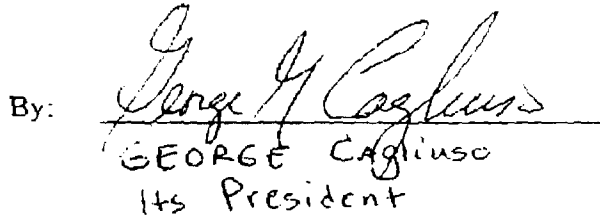 By: George M Cagliuso
GEORGE Cagliuso
Its President